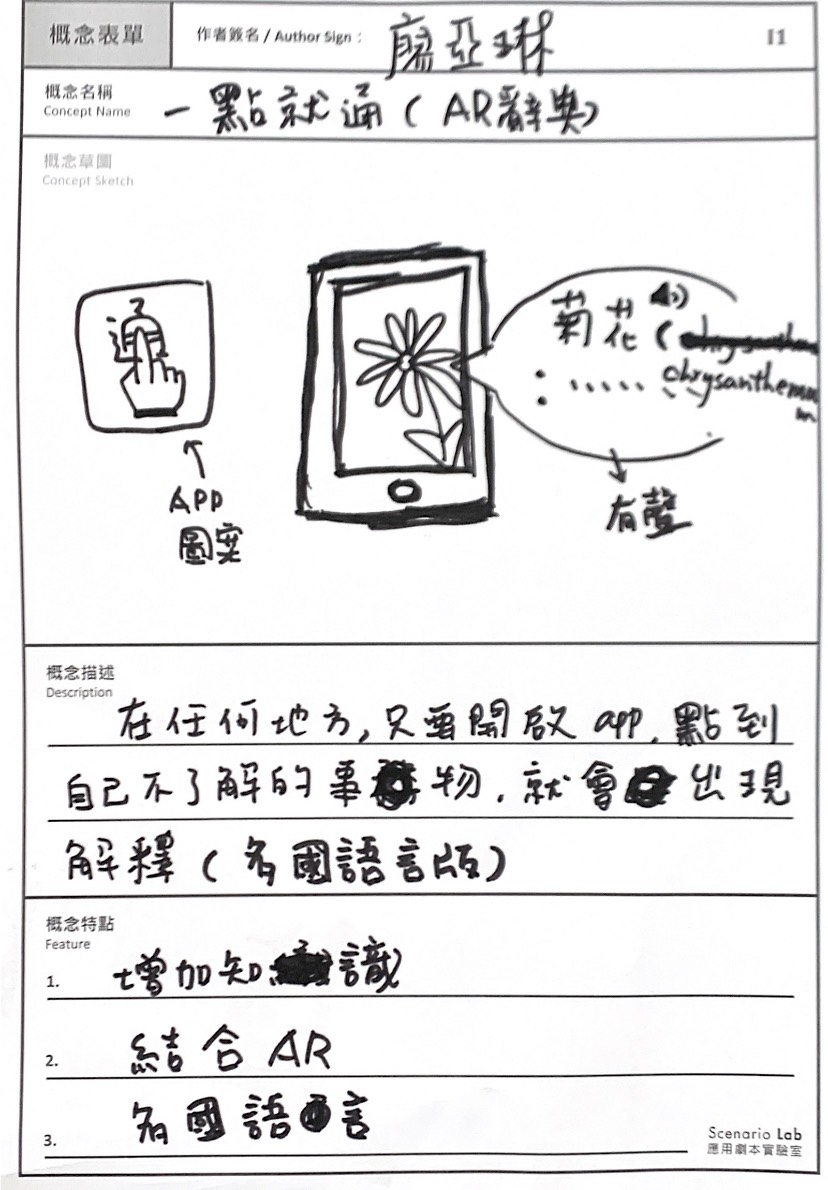 概念表單
作者簽名 / Author Sign：廖亞琳
I1
概念名稱
Concept Name
一點就通（AR辭典）
概念草圖
Concept Sketch
通
APP
圖案
菊花（
chrysanthemum
：......
有聲
概念描述
Description
在任何地方,只要開啟app,點到
自己不了解的事物,就會出現
解釋（多國語言版）
概念特點
Feature
1. 增加知識
2. 結合AR
3. 多國語言
Scenario Lab
應用劇本實驗室